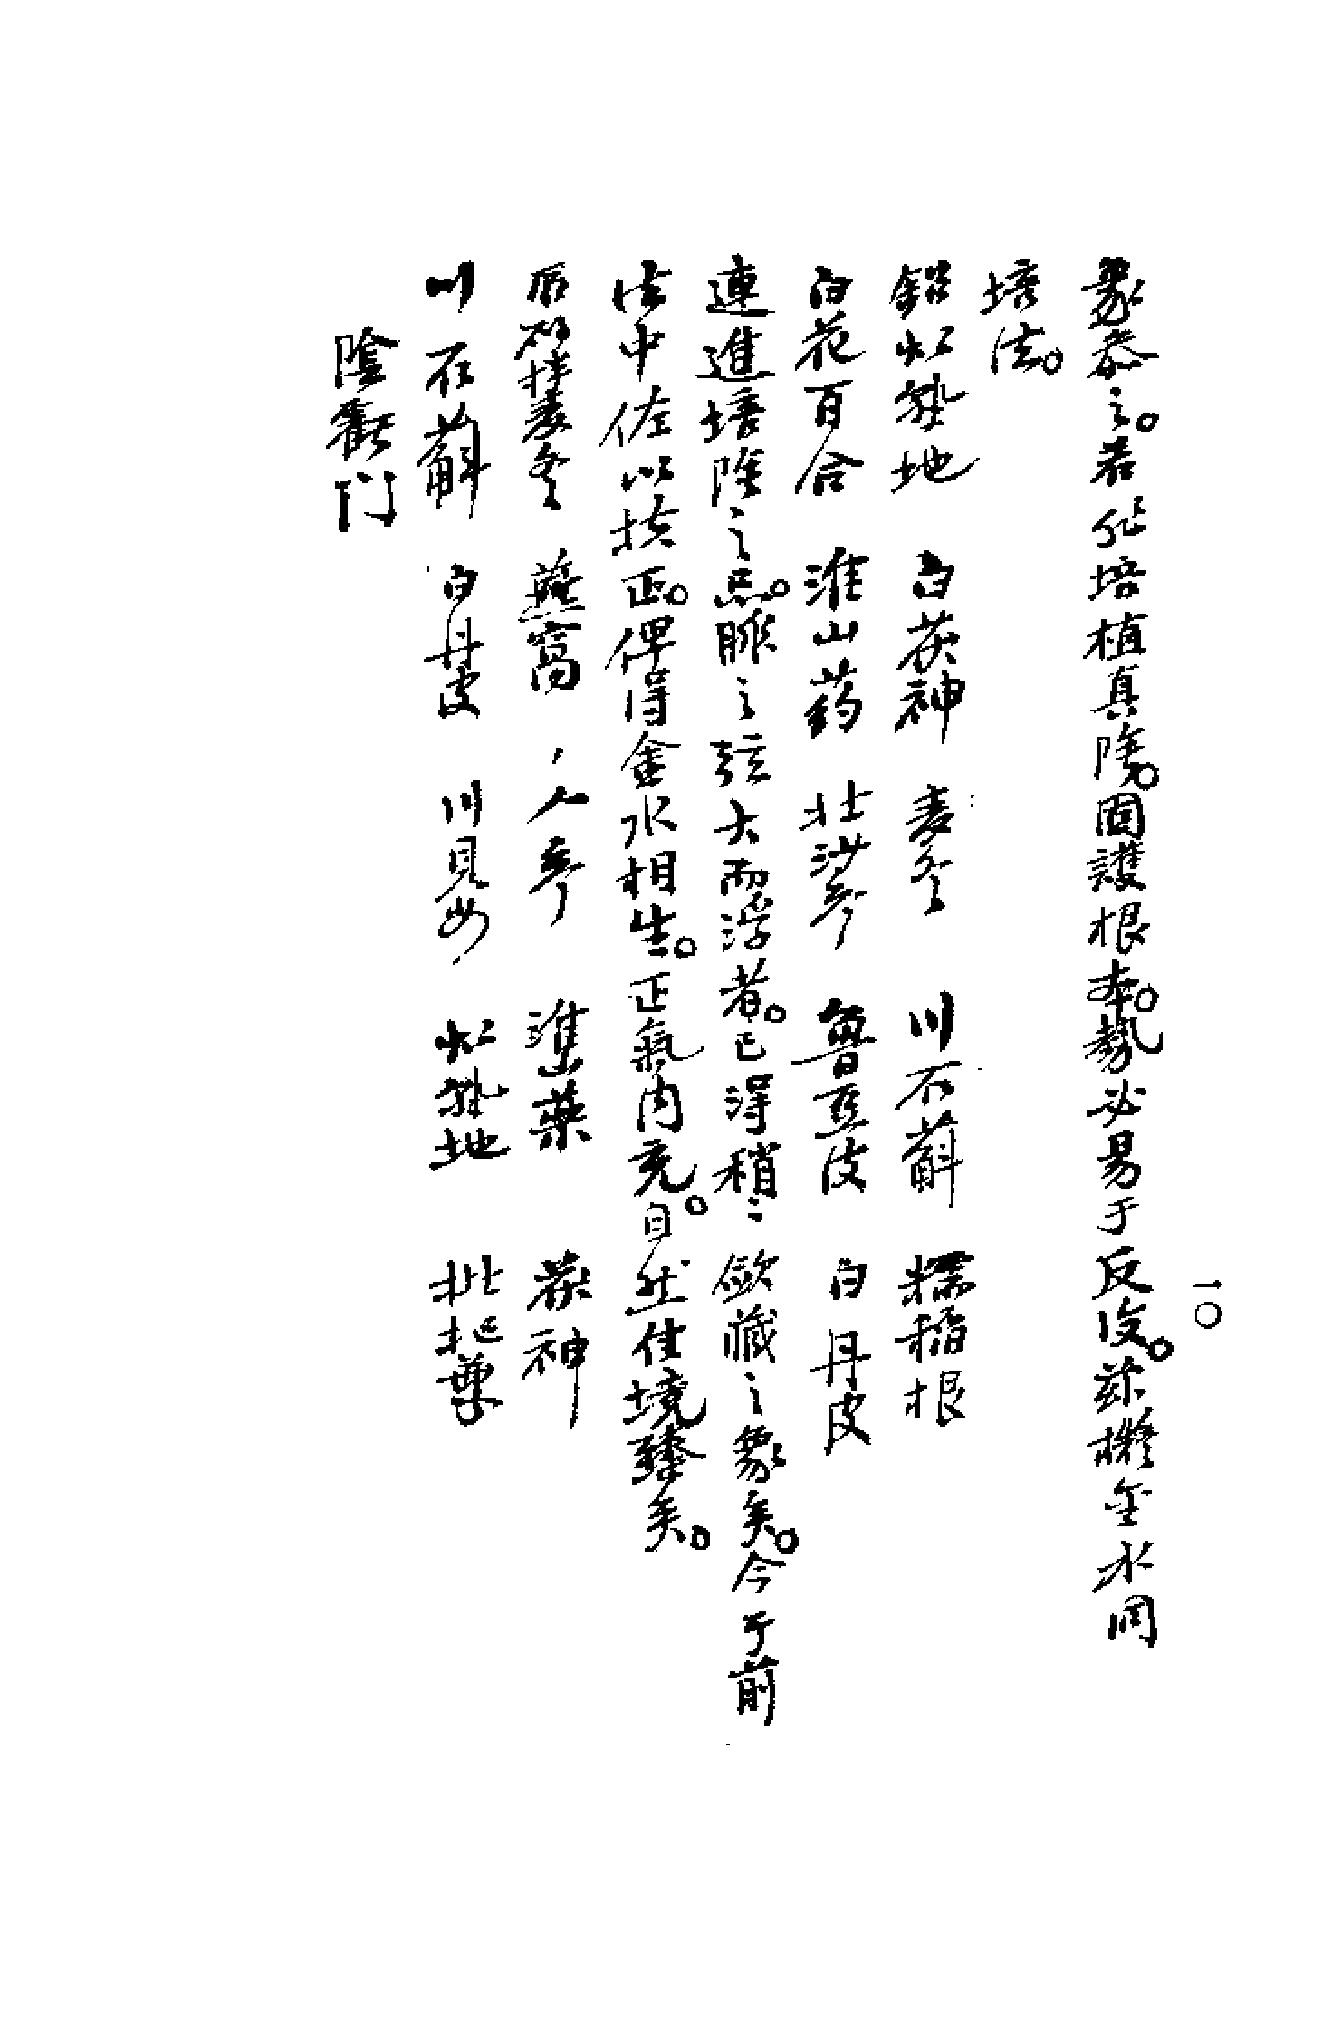 一〇
象參之。若非培植真陰。固護根本。勢必易于反復。茲擬金水同
培法。
鉛炒熟地　白茯神　麦冬　川石斛　糯稻根
白花百合　淮山药　北沙參　魯豆皮　白丹皮
連進培陰之品。脈之弦大而浮者。已得稍〻歛藏之象矣。今于前
法中佐以扶正。俾得金水相生。正氣內充。自然佳境臻矣。
拌麦冬　燕窩　人參　淮山藥　茯神
川石斛　白丹皮　川貝母　炒熟地　枇杷
陰虧门